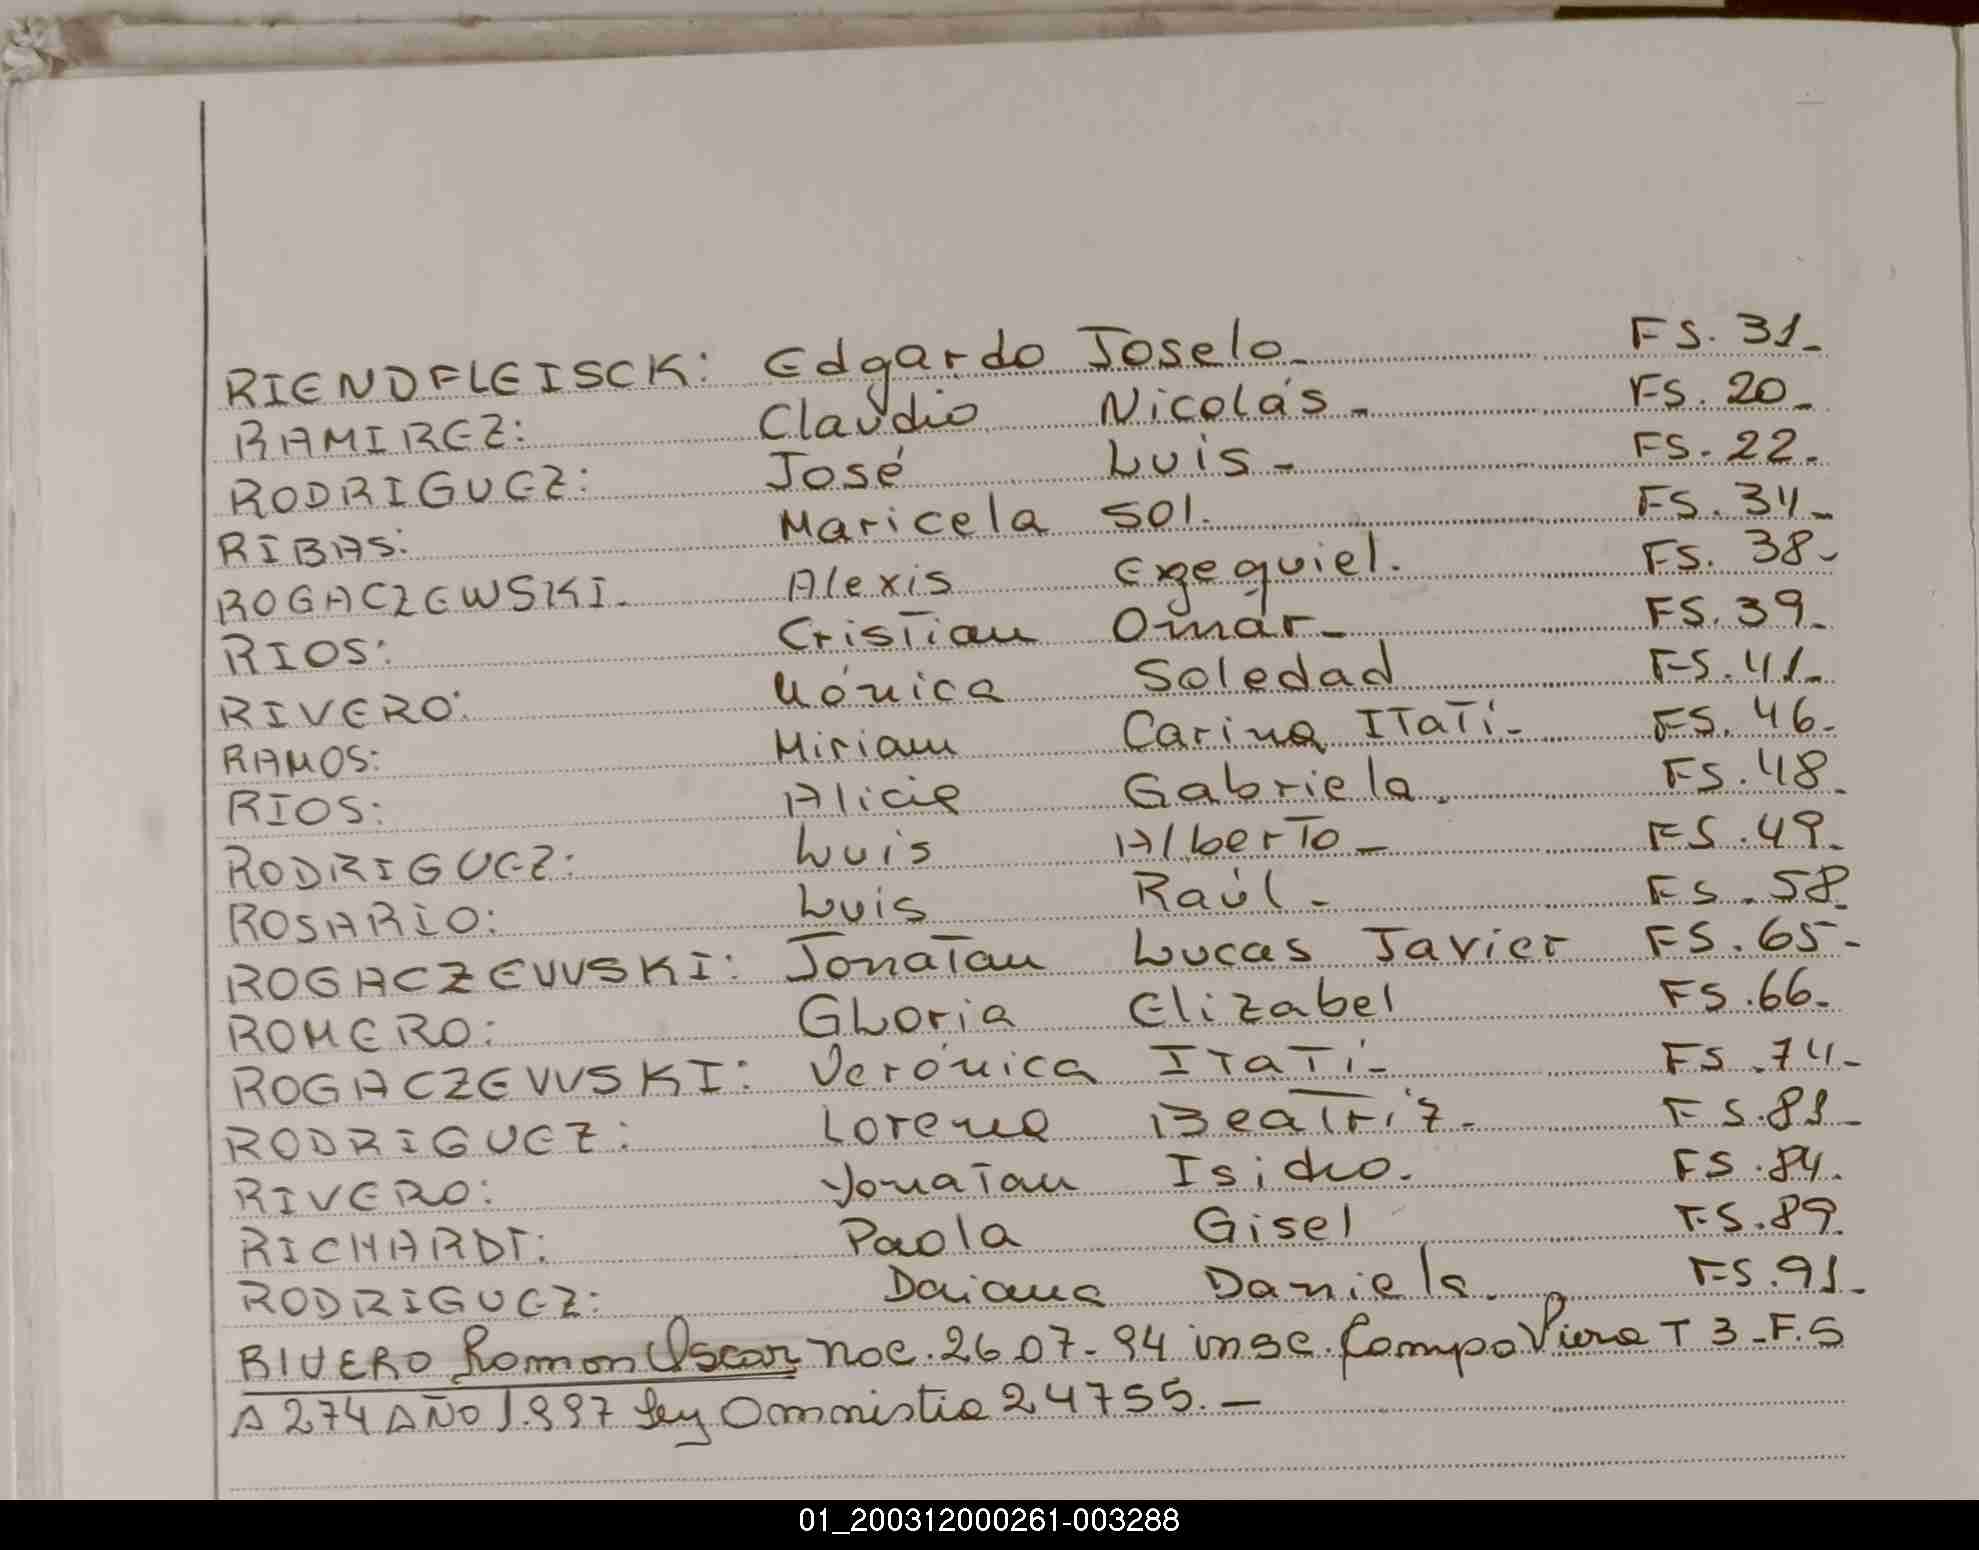 RIENDFLEISCK: Edgardo Joselo- FS. 31-
RAMIREZ: Claudio Nicolás- FS. 20-
RODRIGUEZ: José Luis- FS. 22.
RIBAS: Maricela Sol. FS. 34-
ROGACZEWSKI- Alexis Ezequiel. FS. 38-
RIOS: Cristian Omar- FS. 39-
RIVERO: Mónica Soledad FS. 41-
RAMOS: Miriam Carina ITatí- FS. 46-
RIOS: Alicia Gabriela. FS. 48-
RODRIGUEZ: Luis Alberto- FS. 49-
ROSARIO: Luis Raúl- FS. 58-
ROGACZEWSKI: Jonatan Lucas Javier FS. 65-
ROMERO: GLoria Elizabel FS. 66-
ROGACZEWSKI: Verónica ITaTí- FS. 74-
RODRIGUEZ: Lorena Beatriz- FS. 81-
RIVERO: Yonatan Isidro. FS. 84.
RICHARDT: Paola Gisel FS. 89.
RODRIGUEZ: Daiana Daniela. FS. 91-
RIVERO Ramon Oscar nac. 26.07-94 insc. Campo Viera T 3-F.S
A 274 AÑO 1.997 Ley Omnistia 24755.-
01_200312000261-003288